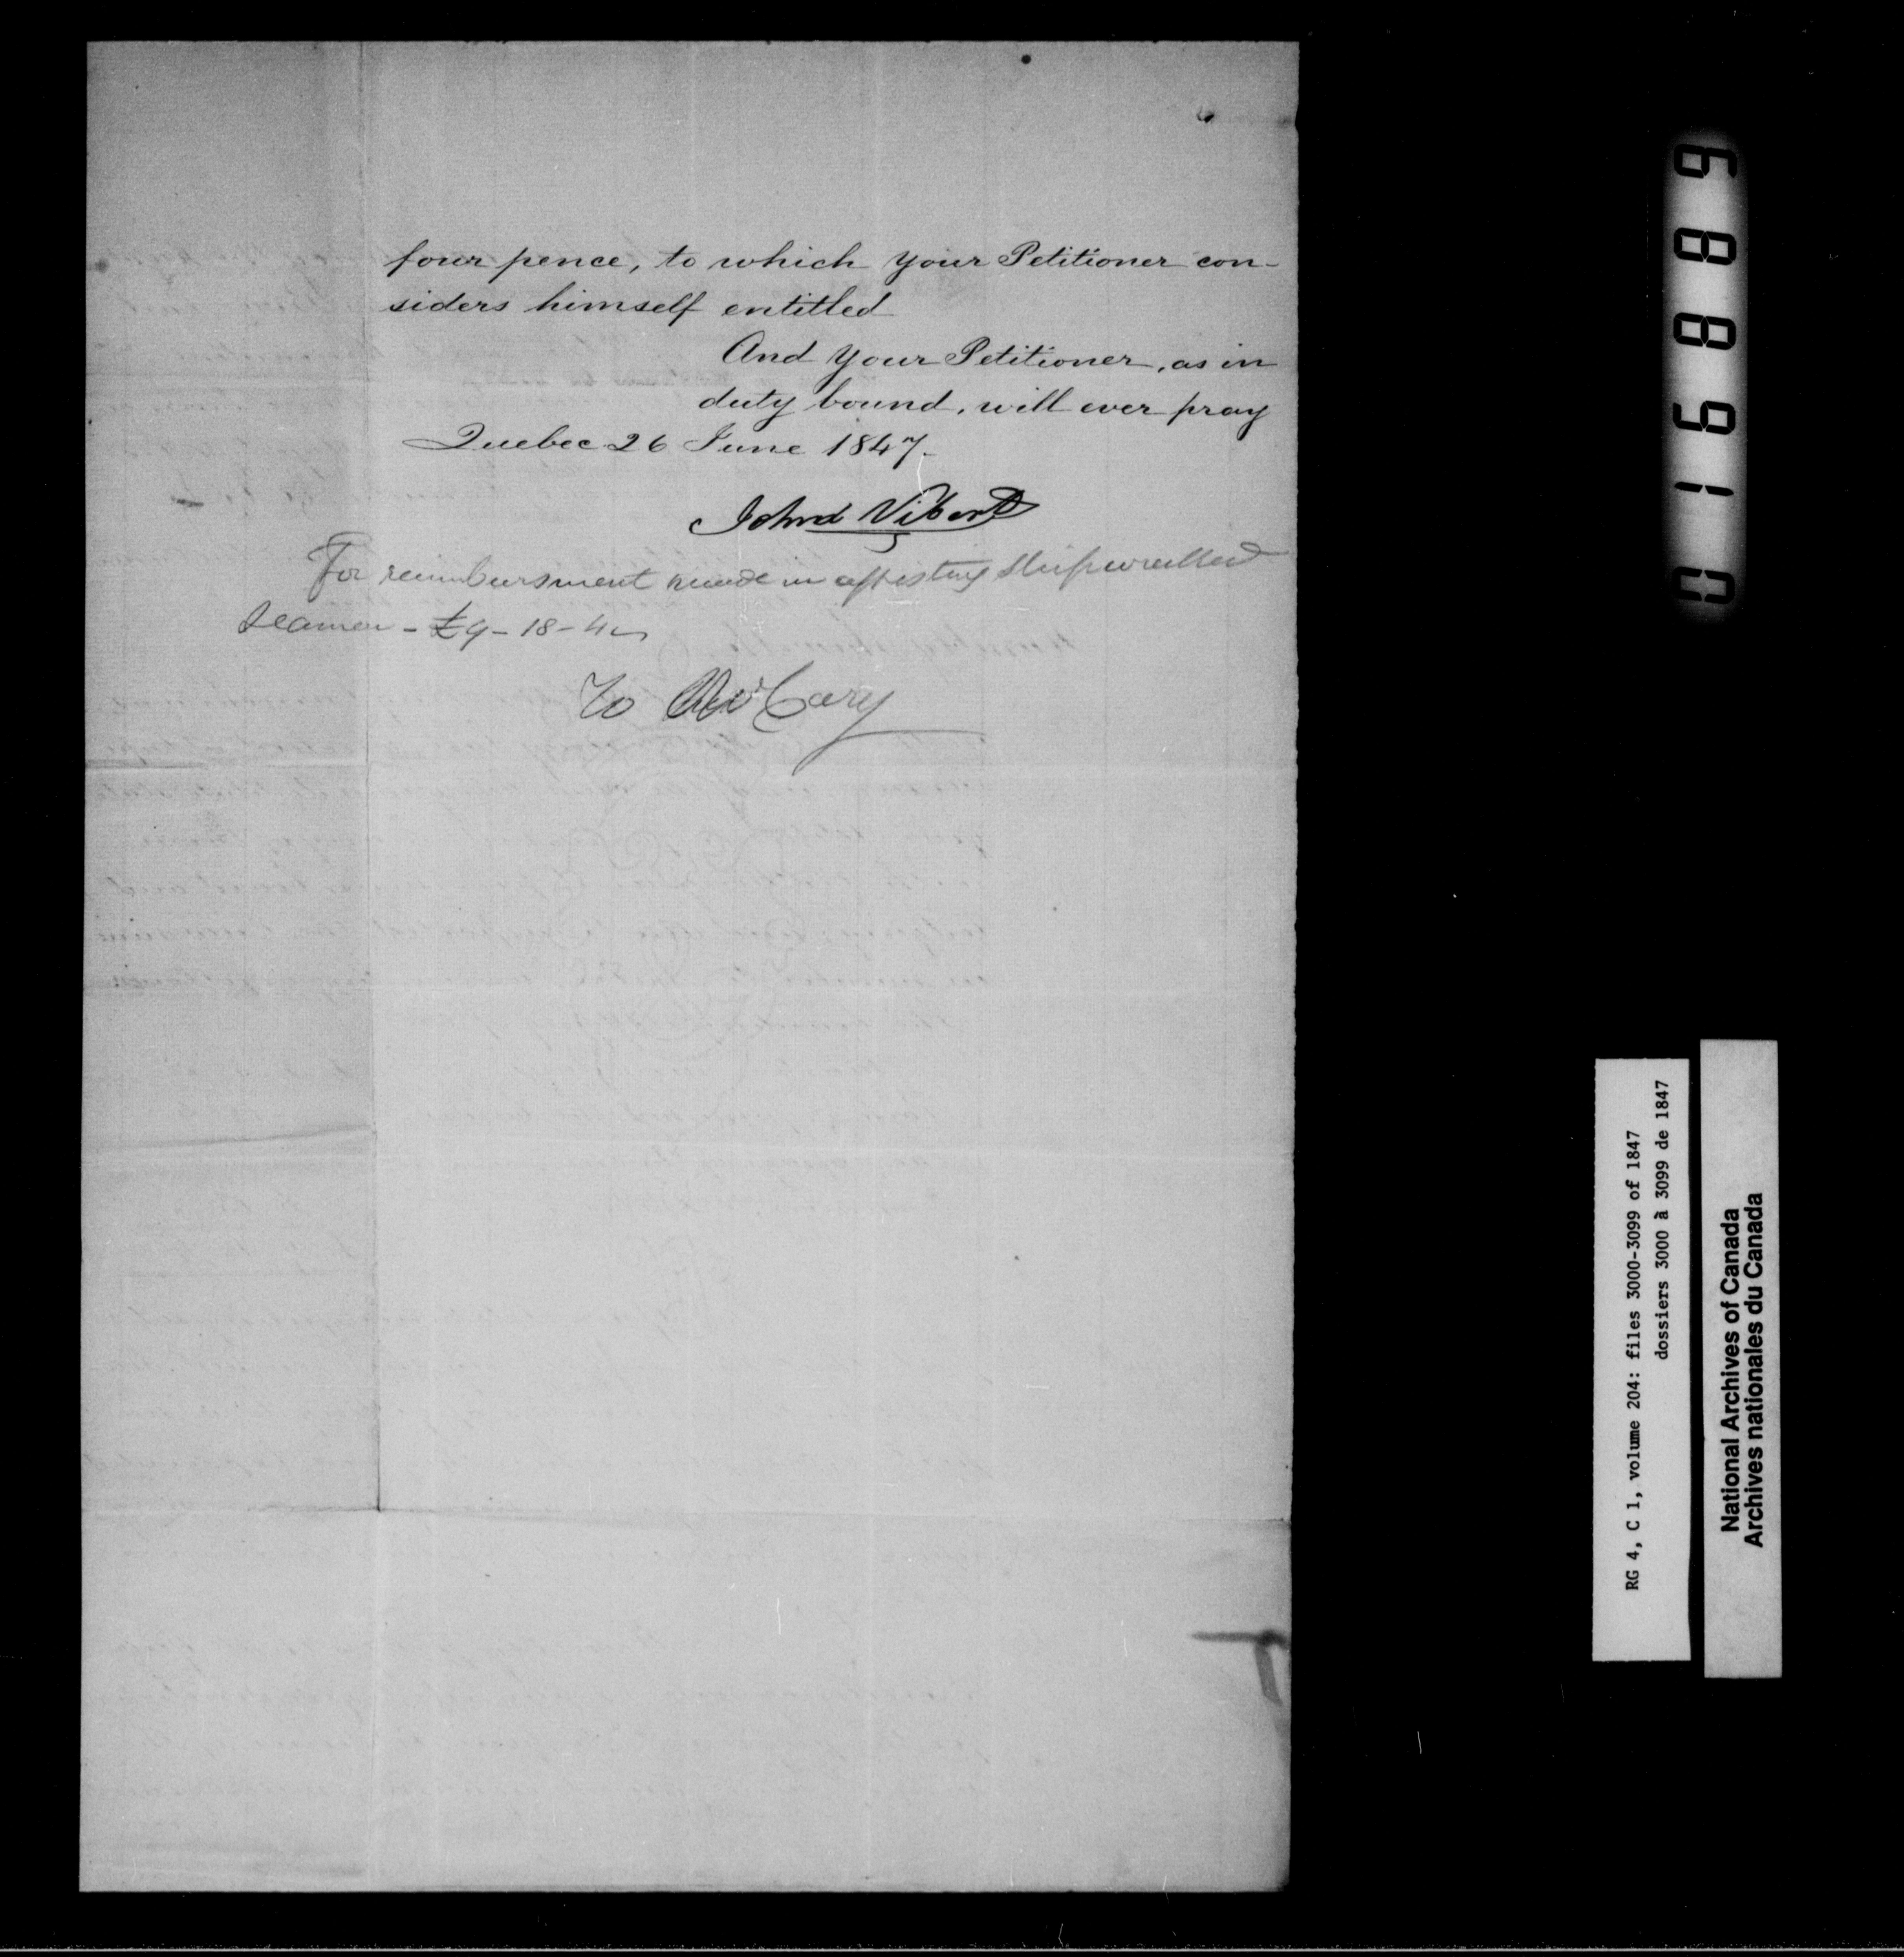 four pence, to which your Petitioner con-
siders himself entitled
And your Petitioner, as in
duty bound, will ever pray
Quebec 26 June 1847.
John Vibert
For reimbursment made in assisting Shipwrecked
Seamen - £9-18-4
To Mr Cary
016889
RG 4, C 1, volume 204: files 3000-3099 of 1847
dossiers 3000 à 3099 de 1847
National Archives of Canada
Archives nationales du Canada